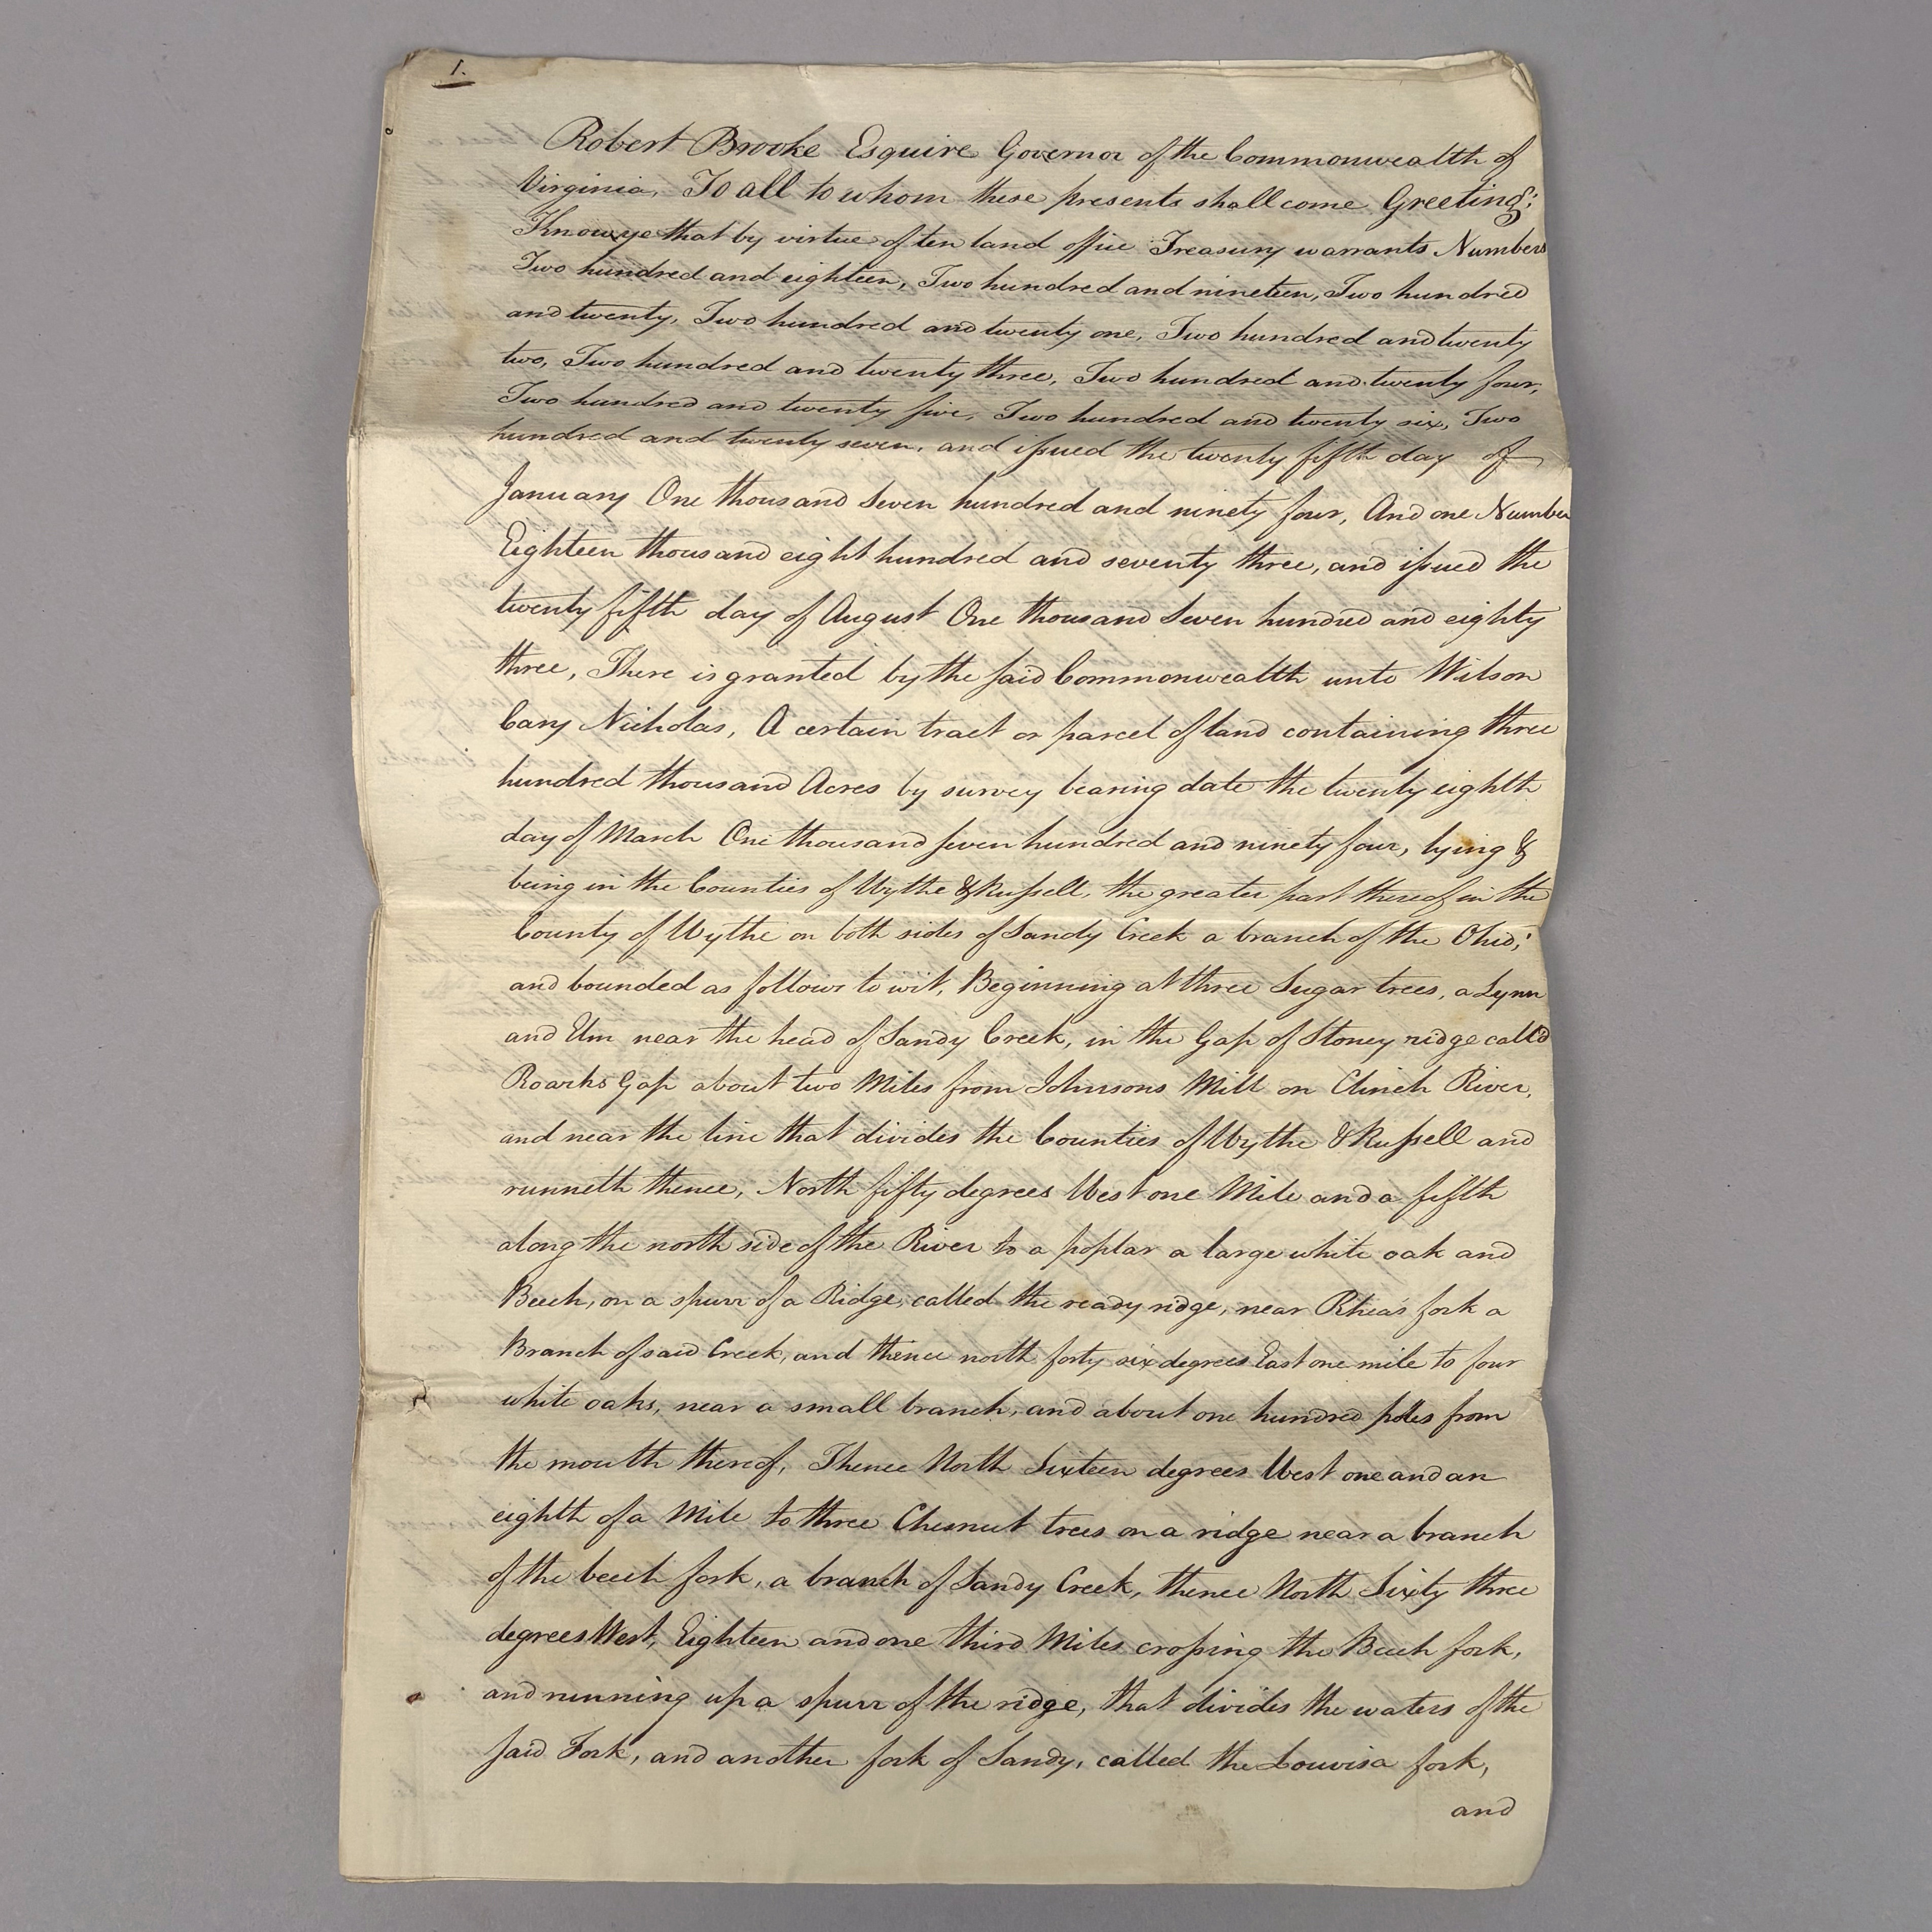 1.
Robert Brooke Esquire Governor of the Commonwealth of
Virginia, To all to whom these presents shall come Greeting;
Know ye that by virtue of ten land office Treasury warrants Numbers
Two hundred and eighteen, Two hundred and nineteen, Two hundred
and twenty, Two hundred and twenty one, Two hundred and twenty
two, Two hundred and twenty three, Two hundred and twenty four,
Two hundred and twenty five, Two hundred and twenty six, Two
hundred and twenty seven, and issued the twenty fifth day of
January One thousand Seven hundred and ninety four, And one Number
Eighteen thousand eight hundred and seventy three, and issued the
twenty fifth day of August One thousand Seven hundred and eighty
three, There is granted by the said Commonwealth unto Wilson
Cary Nicholas, A certain tract or parcel of land containing three
hundred thousand Acres by survey bearing date the twenty eighth
day of March One thousand seven hundred and ninety four, lying &
being in the Counties of Wythe & Russell, the greater part thereof in the
County of Wythe on both sides of Sandy Creek a branch of the Ohio;
and bounded as follows to wit, Beginning at three Sugar trees, a Lynn
and Elm near the head of Sandy Creek, in the Gap of Stoney ridge call'd
Roarks Gap about two Miles from Johnsons Mill on Clinch River,
and near the line that divides the Counties of Wythe & Russell and
runneth thence, North fifty degrees West one Mile and a fifth
along the north side of the River to a poplar a large white oak and
Beech, on a spurr of a Ridge, called the ready ridge, near Rhea's fork a
Branch of said Creek, and thence north forty six degrees East one mile to four
white oaks, near a small branch, and about one hundred poles from
the mouth thereof, Thence North Sixteen degrees West one and an
eighth of a Mile to three Chesnut trees on a ridge near a branch
of the beech fork, a branch of Sandy Creek, thence North Sixty three
degrees West, Eighteen and one third Miles crossing the Beech fork,
and running up a spurr of the ridge, that divides the waters of the
said Fork, and another fork of Sandy, called the Louvisa fork,
and